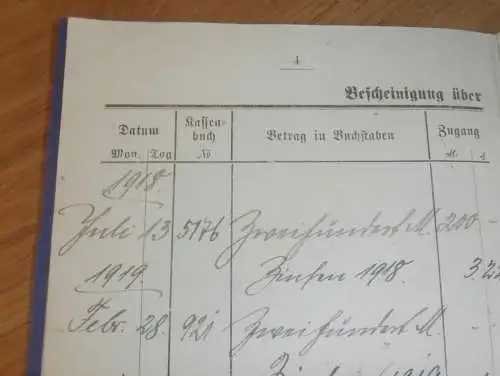 4
Bescheinigung über
Datum Kassenbuch № Betrag in Buchstaben Zugang
Mon. Tag M.
1918.
Juli 13 5176 Zweihundert M. 200 –
1919. Zinsen 1918. 3
Febr. 28. 921 Zweihundert M.
Zinsen